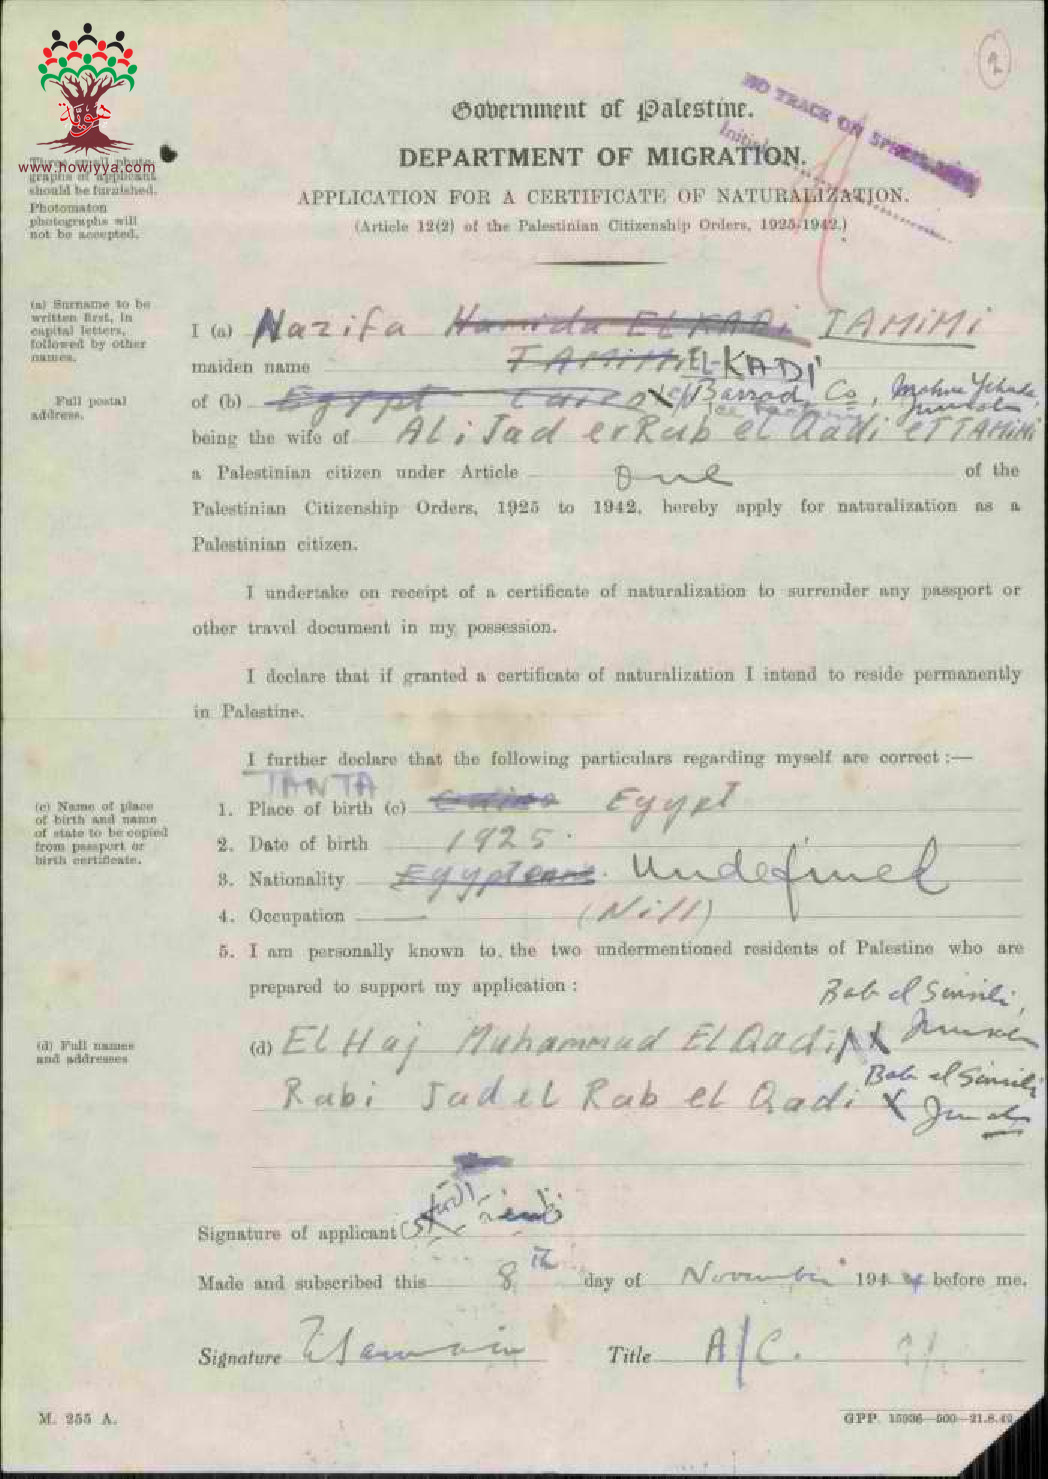 2
هوية
www.howiyya.com
NO TRACE ON
Initial
Government of Palestine.
DEPARTMENT OF MIGRATION.
APPLICATION FOR A CERTIFICATE OF NATURALIZATION.
(Article 12(2) of the Palestinian Citizenship Orders, 1925-1942.)
Three small photo-
graphs of applicant
should be furnished.
Photomaton
photographs will
not be accepted.
(a) Surname to be
written first, in
capital letters,
followed by other
names.
I (a) Nazifa Hamida EL KADI TAMiMi
maiden name TAMIMI EL-KADI
Full postal
address.
of (b) Egypt Cairo X c/ Barrad Co,
being the wife of Ali Jad er Rab el Qadi eT TAMiMi
a Palestinian citizen under Article One of the
Palestinian Citizenship Orders, 1925 to 1942, hereby apply for naturalization as a
Palestinian citizen.
I undertake on receipt of a certificate of naturalization to surrender any passport or
other travel document in my possession.
I declare that if granted a certificate of naturalization I intend to reside permanently
in Palestine.
I further declare that the following particulars regarding myself are correct :—
TANTA
(c) Name of place
of birth and name
of state to be copied
from passport or
birth certificate.
1. Place of birth (c) Cairo Egypt
2. Date of birth 1925.
3. Nationality Egyptians. Undefined
4. Occupation (Nill)
5. I am personally known to, the two undermentioned residents of Palestine who are
prepared to support my application :
Bab el Sinsili,
(d) Full names
and addresses
(d) El Haj Muhammad El Qadi X
Bab el Sinsili
Rabi Jad el Rab el Qadi X
Signature of applicant
Made and subscribed this 8th day of November 1944 before me.
Signature Title A/C.
M. 255 A.
GPP. 15936—500—21.8.42